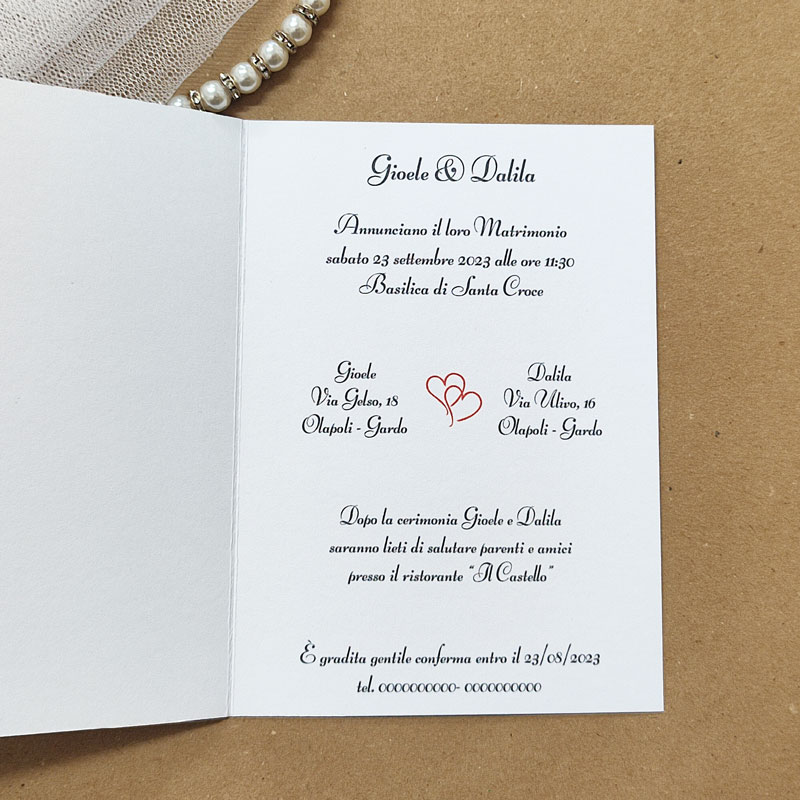 Gioele & Dalila
Annunciano il loro Matrimonio
sabato 23 settembre 2023 alle ore 11:30
Basilica di Santa Croce
Gioele
Via Gelso, 18
Olapoli - Gardo
Dalila
Via Ulivo, 16
Olapoli - Gardo
Dopo la cerimonia Gioele e Dalila
saranno lieti di salutare parenti e amici
presso il ristorante “Il Castello”
È gradita gentile conferma entro il 23/08/2023
tel. 0000000000- 0000000000